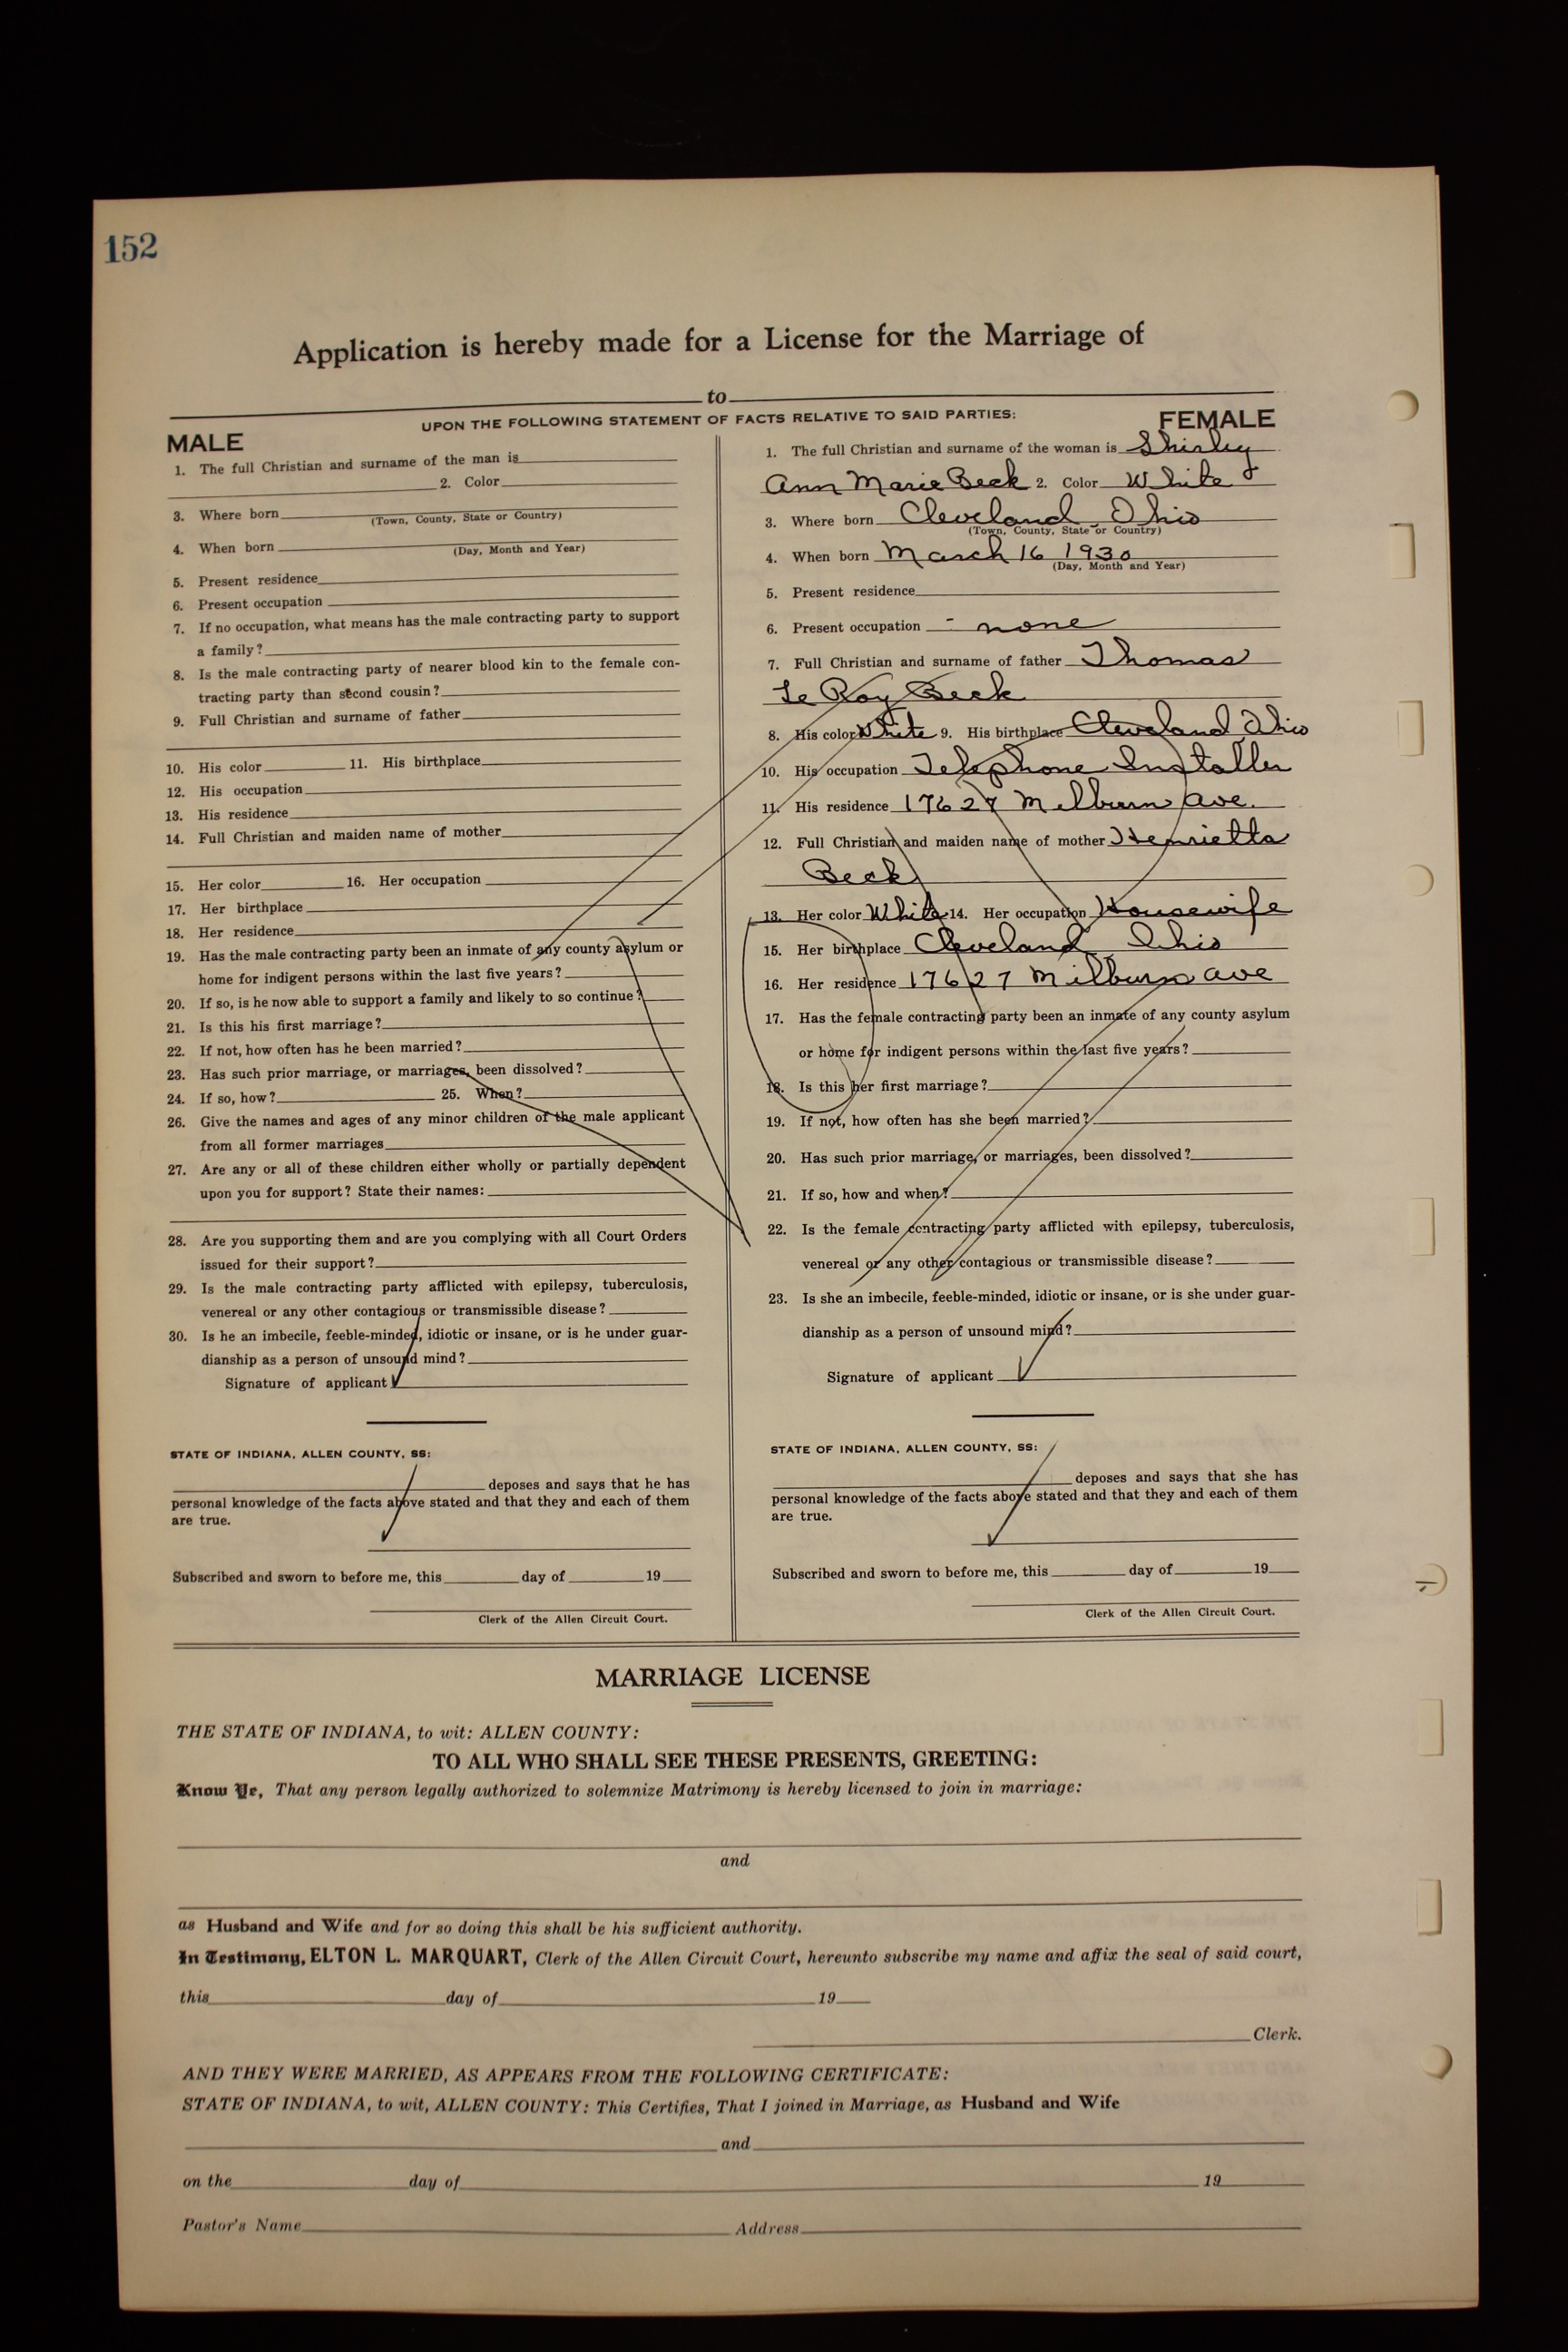 152
Application is hereby made for a License for the Marriage of
to
UPON THE FOLLOWING STATEMENT OF FACTS RELATIVE TO SAID PARTIES:
MALE
1. The full Christian and surname of the man is
2. Color
3. Where born
(Town, County, State or Country)
4. When born
(Day, Month and Year)
5. Present residence
6. Present occupation
7. If no occupation, what means has the male contracting party to support
a family?
8. Is the male contracting party of nearer blood kin to the female con-
tracting party than second cousin?
9. Full Christian and surname of father
10. His color 11. His birthplace
12. His occupation
13. His residence
14. Full Christian and maiden name of mother
15. Her color 16. Her occupation
17. Her birthplace
18. Her residence
19. Has the male contracting party been an inmate of any county asylum or
home for indigent persons within the last five years?
20. If so, is he now able to support a family and likely to so continue?
21. Is this his first marriage?
22. If not, how often has he been married?
23. Has such prior marriage, or marriages, been dissolved?
24. If so, how? 25. When?
26. Give the names and ages of any minor children of the male applicant
from all former marriages
27. Are any or all of these children either wholly or partially dependent
upon you for support? State their names:
28. Are you supporting them and are you complying with all Court Orders
issued for their support?
29. Is the male contracting party afflicted with epilepsy, tuberculosis,
venereal or any other contagious or transmissible disease?
30. Is he an imbecile, feeble-minded, idiotic or insane, or is he under guar-
dianship as a person of unsound mind?
Signature of applicant
STATE OF INDIANA, ALLEN COUNTY, SS:
deposes and says that he has
personal knowledge of the facts above stated and that they and each of them
are true.
Subscribed and sworn to before me, this day of 19
Clerk of the Allen Circuit Court.
FEMALE
1. The full Christian and surname of the woman is Shirley
Ann Marie Beck 2. Color White
3. Where born Cleveland Ohio
(Town, County, State or Country)
4. When born March 16 1930
(Day, Month and Year)
5. Present residence
6. Present occupation - none
7. Full Christian and surname of father Thomas
Le Roy Beck
8. His color White 9. His birthplace Cleveland Ohio
10. His occupation Telephone Installer
11. His residence 17627 Milburn Ave.
12. Full Christian and maiden name of mother Henrietta
Beck
13. Her color White 14. Her occupation Housewife
15. Her birthplace Cleveland Ohio
16. Her residence 17627 Milburn Ave
17. Has the female contracting party been an inmate of any county asylum
or home for indigent persons within the last five years?
18. Is this her first marriage?
19. If not, how often has she been married?
20. Has such prior marriage, or marriages, been dissolved?
21. If so, how and when?
22. Is the female contracting party afflicted with epilepsy, tuberculosis,
venereal or any other contagious or transmissible disease?
23. Is she an imbecile, feeble-minded, idiotic or insane, or is she under guar-
dianship as a person of unsound mind?
Signature of applicant
STATE OF INDIANA, ALLEN COUNTY, SS:
deposes and says that she has
personal knowledge of the facts above stated and that they and each of them
are true.
Subscribed and sworn to before me, this day of 19
Clerk of the Allen Circuit Court.
MARRIAGE LICENSE
THE STATE OF INDIANA, to wit: ALLEN COUNTY:
TO ALL WHO SHALL SEE THESE PRESENTS, GREETING:
Know Ye, That any person legally authorized to solemnize Matrimony is hereby licensed to join in marriage:
and
as Husband and Wife and for so doing this shall be his sufficient authority.
In Testimony, ELTON L. MARQUART, Clerk of the Allen Circuit Court, hereunto subscribe my name and affix the seal of said court,
this day of 19
Clerk.
AND THEY WERE MARRIED, AS APPEARS FROM THE FOLLOWING CERTIFICATE:
STATE OF INDIANA, to wit, ALLEN COUNTY: This Certifies, That I joined in Marriage, as Husband and Wife
and
on the day of 19
Pastor's Name Address